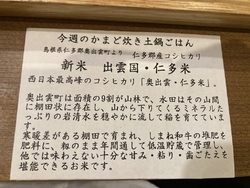 今週のかまど炊き土鍋ごはん
島根県仁多郡奥出雲町より 仁多郡産コシヒカリ
新米 出雲国・仁多米
西日本最高峰のコシヒカリ「奥出雲・仁多米」。
奥出雲町は面積の9割が山林で、水田はその山間
に棚田状に存在し、山から下りてくるミネラルた
っぷりの岩清水を穏やかに流して稲を育てていま
す。
寒暖差がある棚田で育まれ、しまね和牛の堆肥を
肥料に、籾のまま年間通して低温貯蔵で管理し、
他では味わえない十分な甘み・粘り・歯ごたえを
堪能できるお米です。